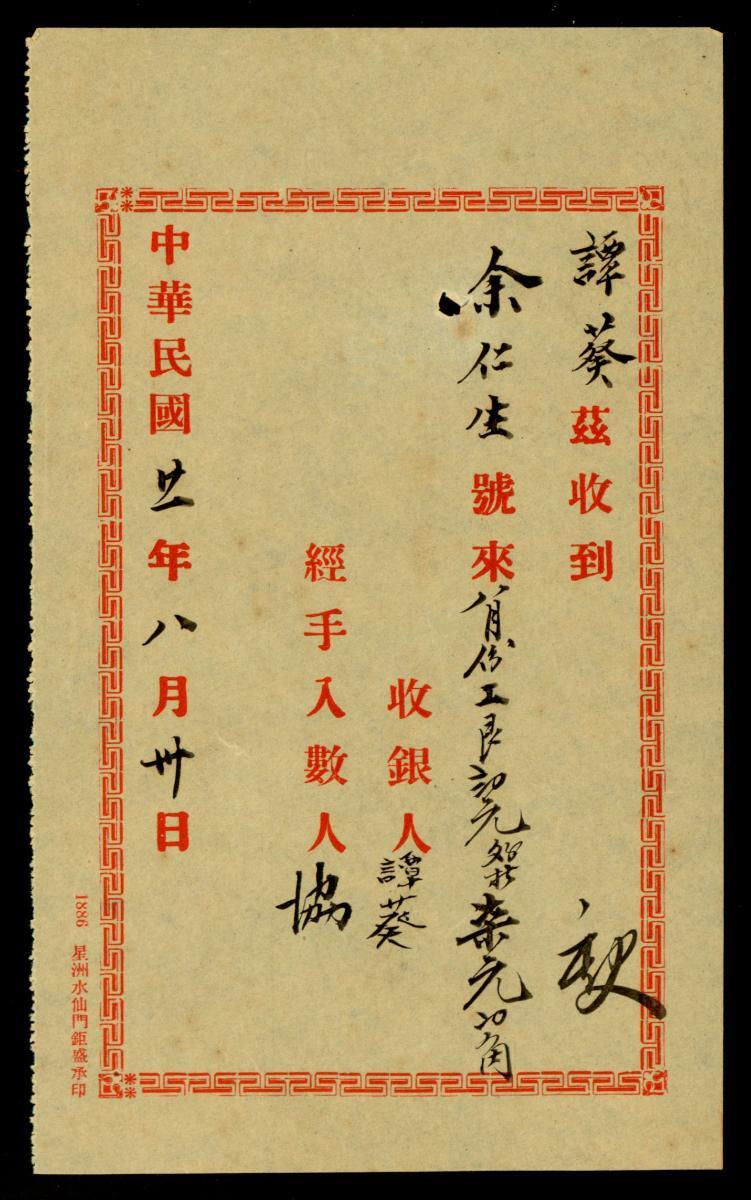 譚葵茲收到
余仁生號來八月份工艮元柒元角
收銀人譚葵
經手入數人協
中華民國廿一年八月卅日
1886 星洲水仙門鉅盛承印